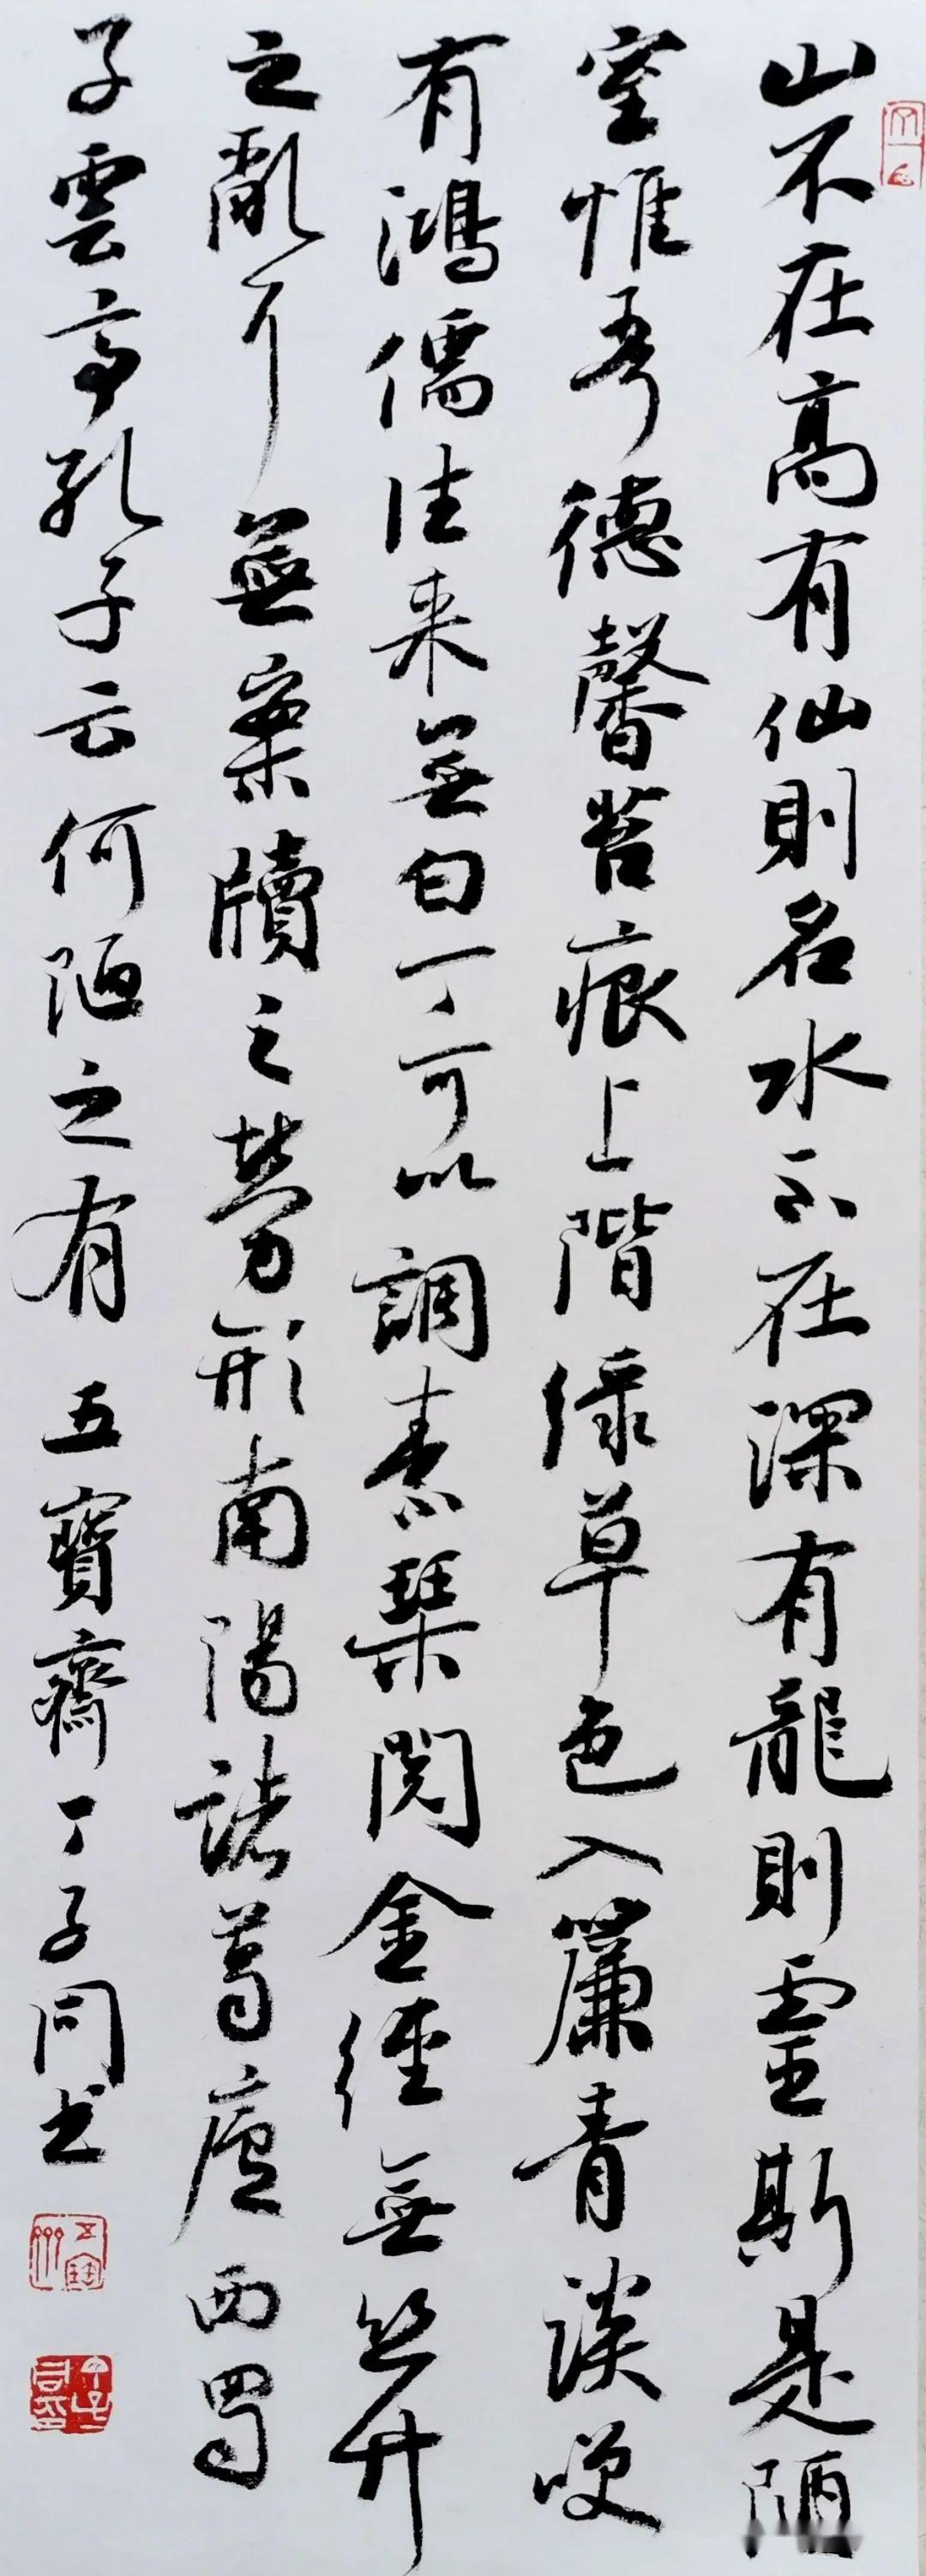 山不在高有仙則名水不在深有龍則靈斯是陋
室惟吾德馨苔痕上階緑草色入簾青談咲
有鴻儒往来無白丁可以調素琴閱金經無丝竹
之亂耳無案牘之勞形南陽諸葛廬西蜀
子雲亭孔子云何陋之有 五寶齋丁子同书